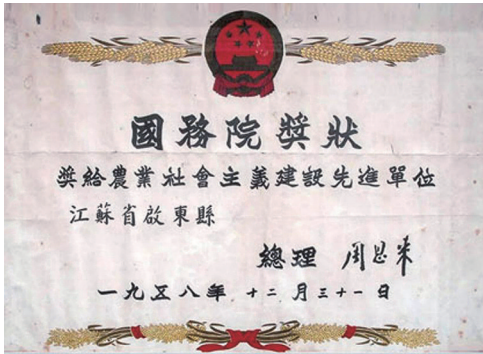 國務院奬狀
奬給農業社會主義建設先進單位
江蘇省啟東縣
總理 周恩来
一九五八年 十二月三十一日